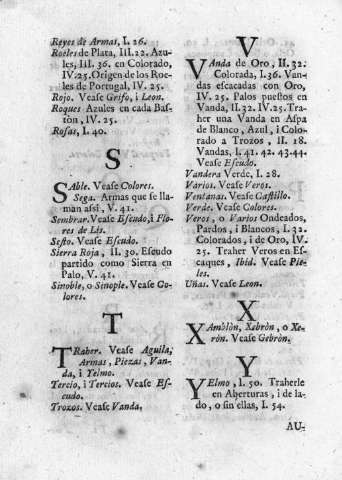 Reyes de Armas, I. 26.
Roeles de Plata, III. 22. Azu-
les, III. 36. en Colorado,
IV. 25. Origen de los Roe-
les de Portugal, IV. 25.
Rojo. Vease Grifo, i Leon.
Roques Azules en cada Baſ-
tòn, IV. 25.
Roſas, I. 40.
S
SAble. Vease Colores.
Sega. Armas que ſe lla-
man aſsi, V. 41.
Sembrar. Vease Eſcudo, i Flo-
res de Lis.
Seſto. Vease Eſcudo.
Sierra Roja, II. 30. Eſcudo
partido como Sierra en
Palo, V. 41.
Sinoble, o Sinople. Vease Co-
lores.
T
TRaher. Vease Aguila,
Armas, Piezas, Van-
da, i Yelmo.
Tercio, i Tercios. Vease Eſ-
cudo.
Trozos. Vease Vanda.
V
VAnda de Oro, II. 32.
Colorada, I. 36. Van-
das eſcacadas con Oro,
IV. 25. Palos pueſtos en
Vanda, II. 32. IV. 25. Tra-
her una Vanda en Aſpa
de Blanco, Azul, i Colo-
rado a Trozos, II. 18.
Vandas, I. 41. 42. 43. 44.
Vease Eſcudo.
Vandera Verde, I. 28.
Vàrios. Vease Veros.
Ventanas. Vease Caſtillo.
Verde. Vease Colores.
Veros, o Varios Ondeados,
Pardos, i Blancos, I. 32.
Colorados, i de Oro, IV.
25. Traher Veros en Eſ-
caques, ibid. Vease Pie-
les.
Uñas. Vease Leon.
X
XAmòlòn, Xebròn, o Xe-
ròn. Vease Gebròn.
Y
YElmo, I. 50. Traherle
en Aberturas, i de la-
do, o ſin ellas, I. 54.
AU-